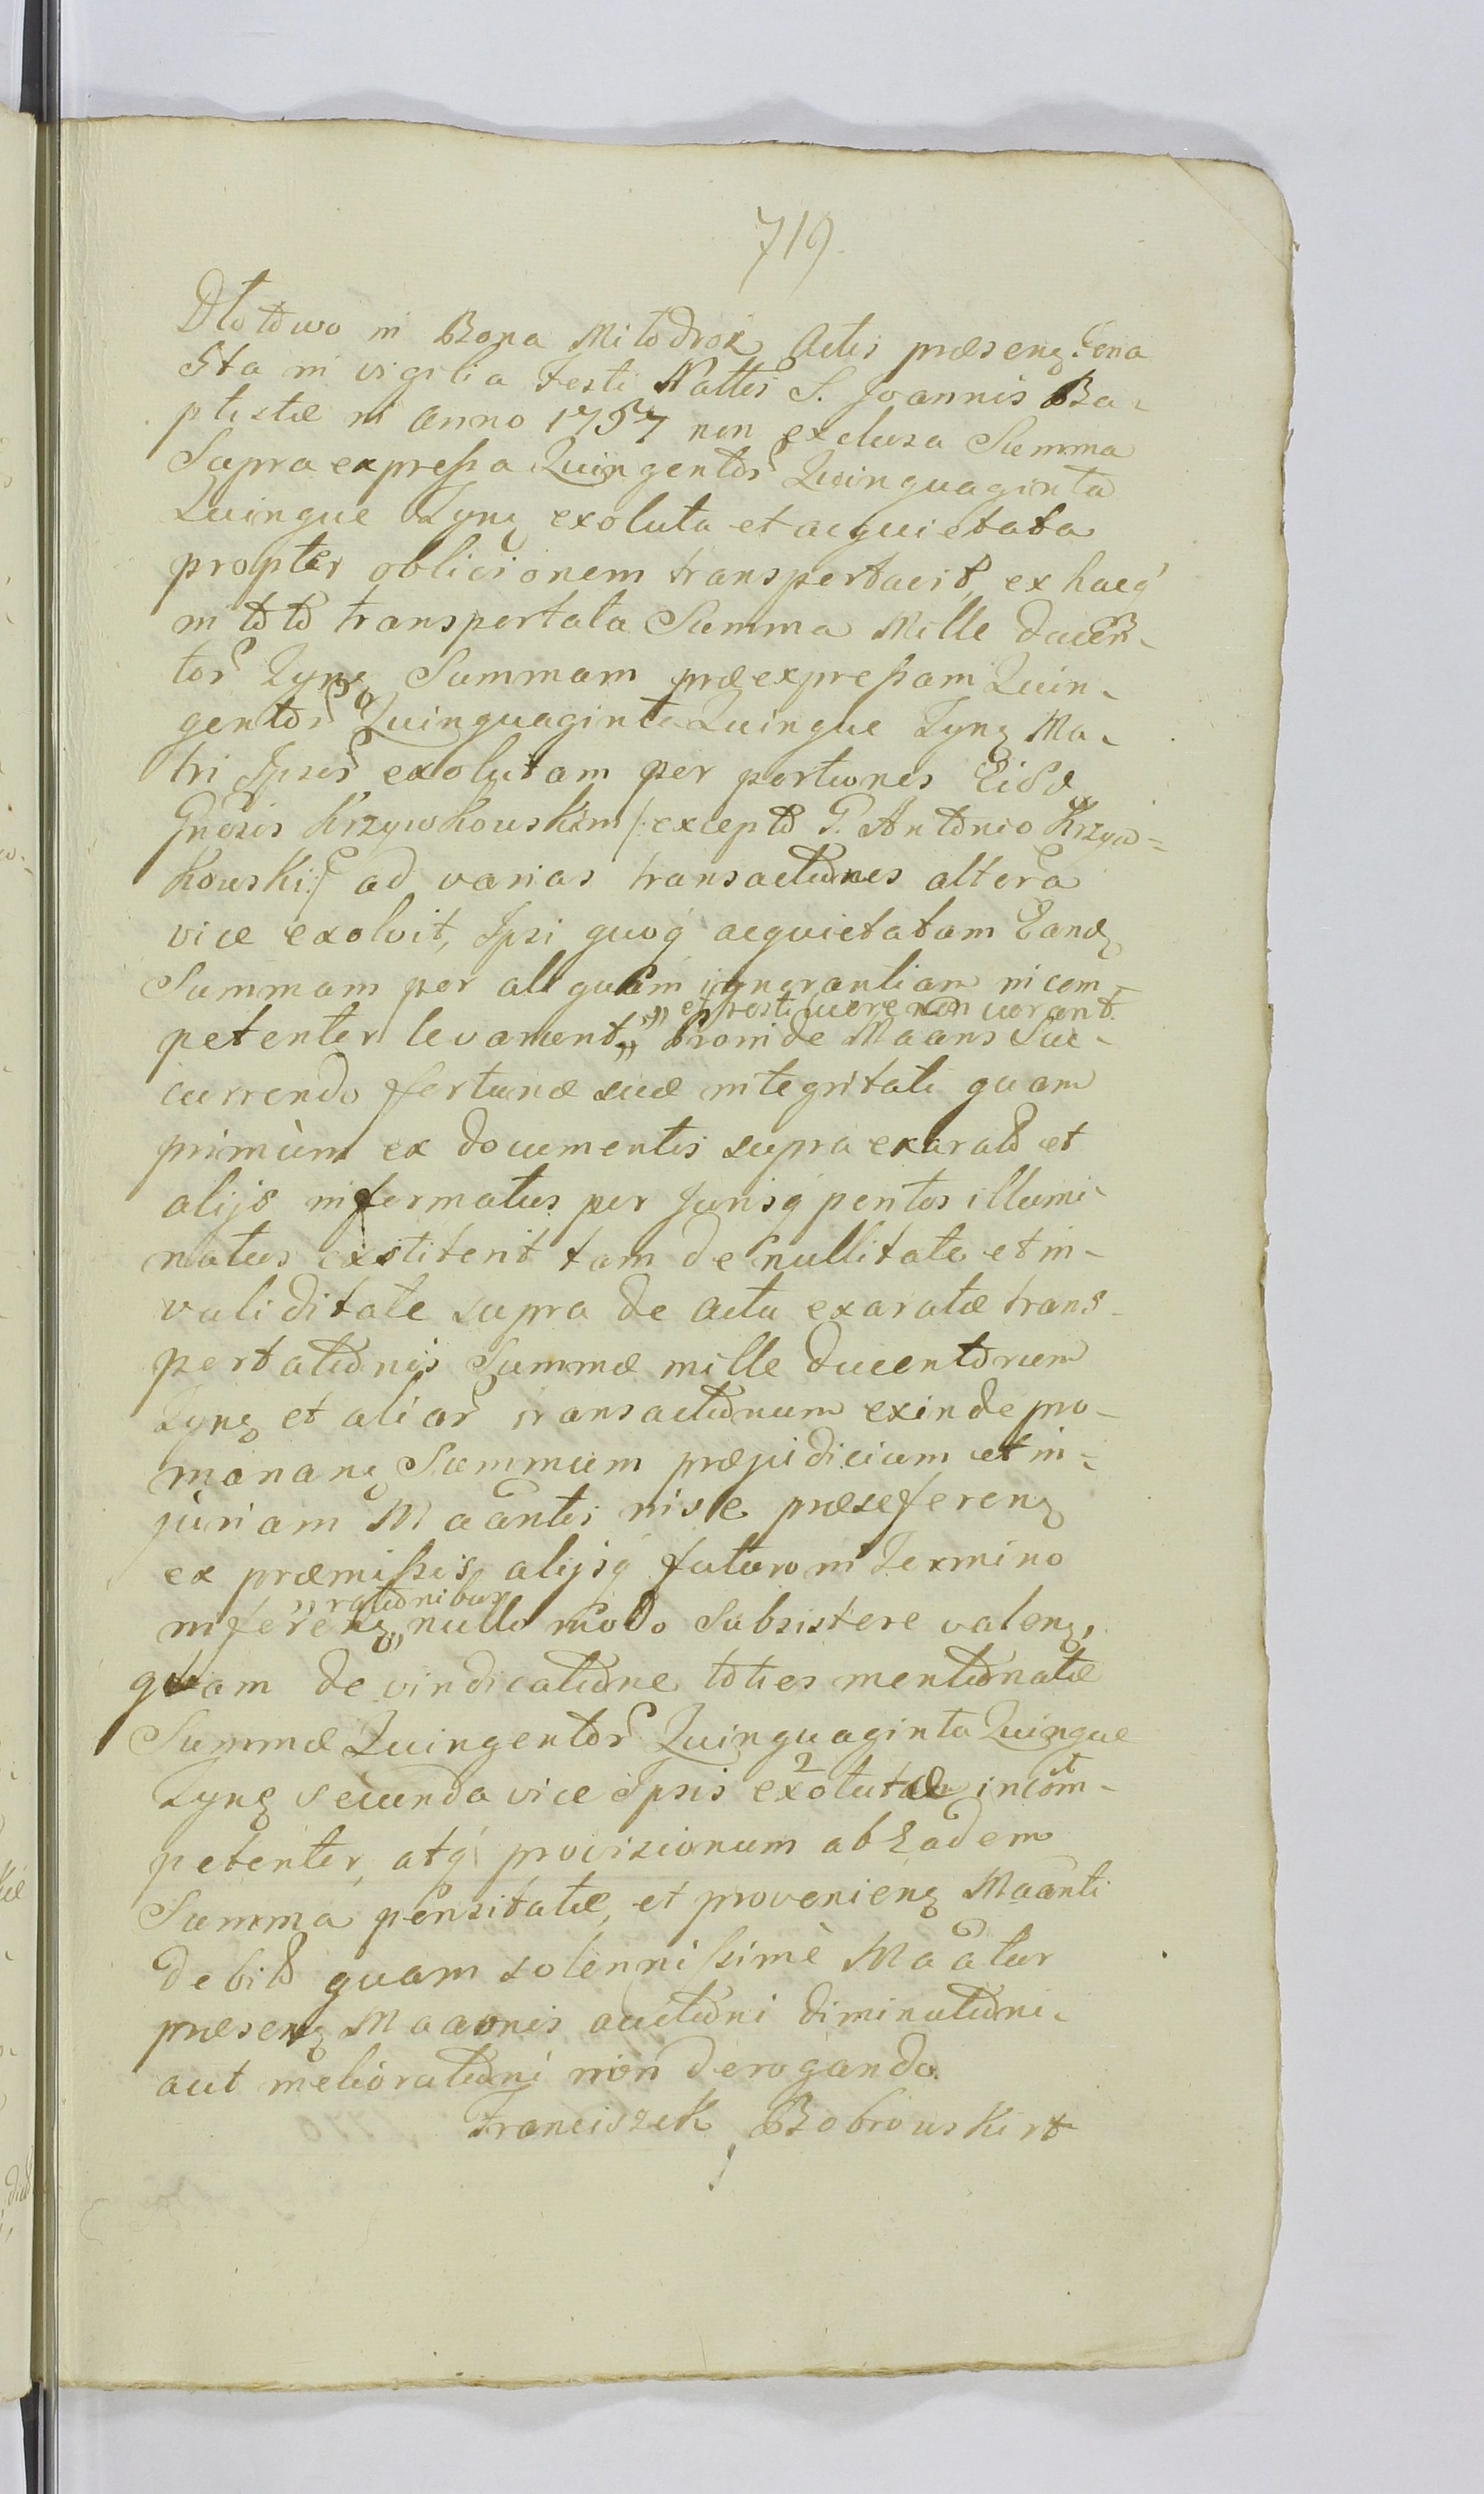 719.
Dłotowo in Bona Miłodroż Actis præsenꝫ Cona
Sta in vigilia Festi Nattis S. Joannis Ba-
ptistæ in Anno 1757 non exclusa Summa
Supra expressa Quingentor Quinquaginta
Quinque Tynꝫ exoluta et acquietata
propter oblicionem transportavit, ex hacq́
in toto transportata Summa Mille ducen-
tor Tynꝫ Summam præexpressam Quin-
gentor Quinquaginta Quinque Tynꝫ Ma-
tri Ipsor exolutam per portiones Eisd
Gnosis Krzywkowskim /: excepto G. Antonio Krzyw=
kowski :/ ad varias transactiones altera
vice exolvit, Ipsi quoq́ acquietatam Eandꝫ
Summam per aliquam ignorantiam incom-
petenter levament „ Proinde Maans Suc-
„ et restituere non curant.
currendo fortunæ suæ integritati quam
primùm ex documentis supra exarato et
alijs informatus per Jurisq́ peritos illumi-
natus exstiterit tam de nullitate et in-
validitate supra de actu exaratæ trans-
portationis Summæ mille ducentorum
Tynꝫ et aliar transactionum exinde pro-
mananꝫ Summum præjudicium et in-
juriam Maantis in se præseferenꝫ
ex præmissis alijsq́ futuro in Termino
„ rationibus
inferenꝫ „ nullo modo Subsistere valenꝫ,
quam de vindicatione toties mentionatæ
Summæ Quingentor Quinquaginta Quinque
Tynꝫ secunda vice Ipsis exolutæ incom-
petenter, atq́ provisionum ab Eadem
Summa pensitatæ, et provenienꝫ Maanti
debito quam solennissimè Maatur
præsenꝫ Maaonis auctioni diminutioni-
aut meliorationi non derogando.
Franciszek Bobrowski rt